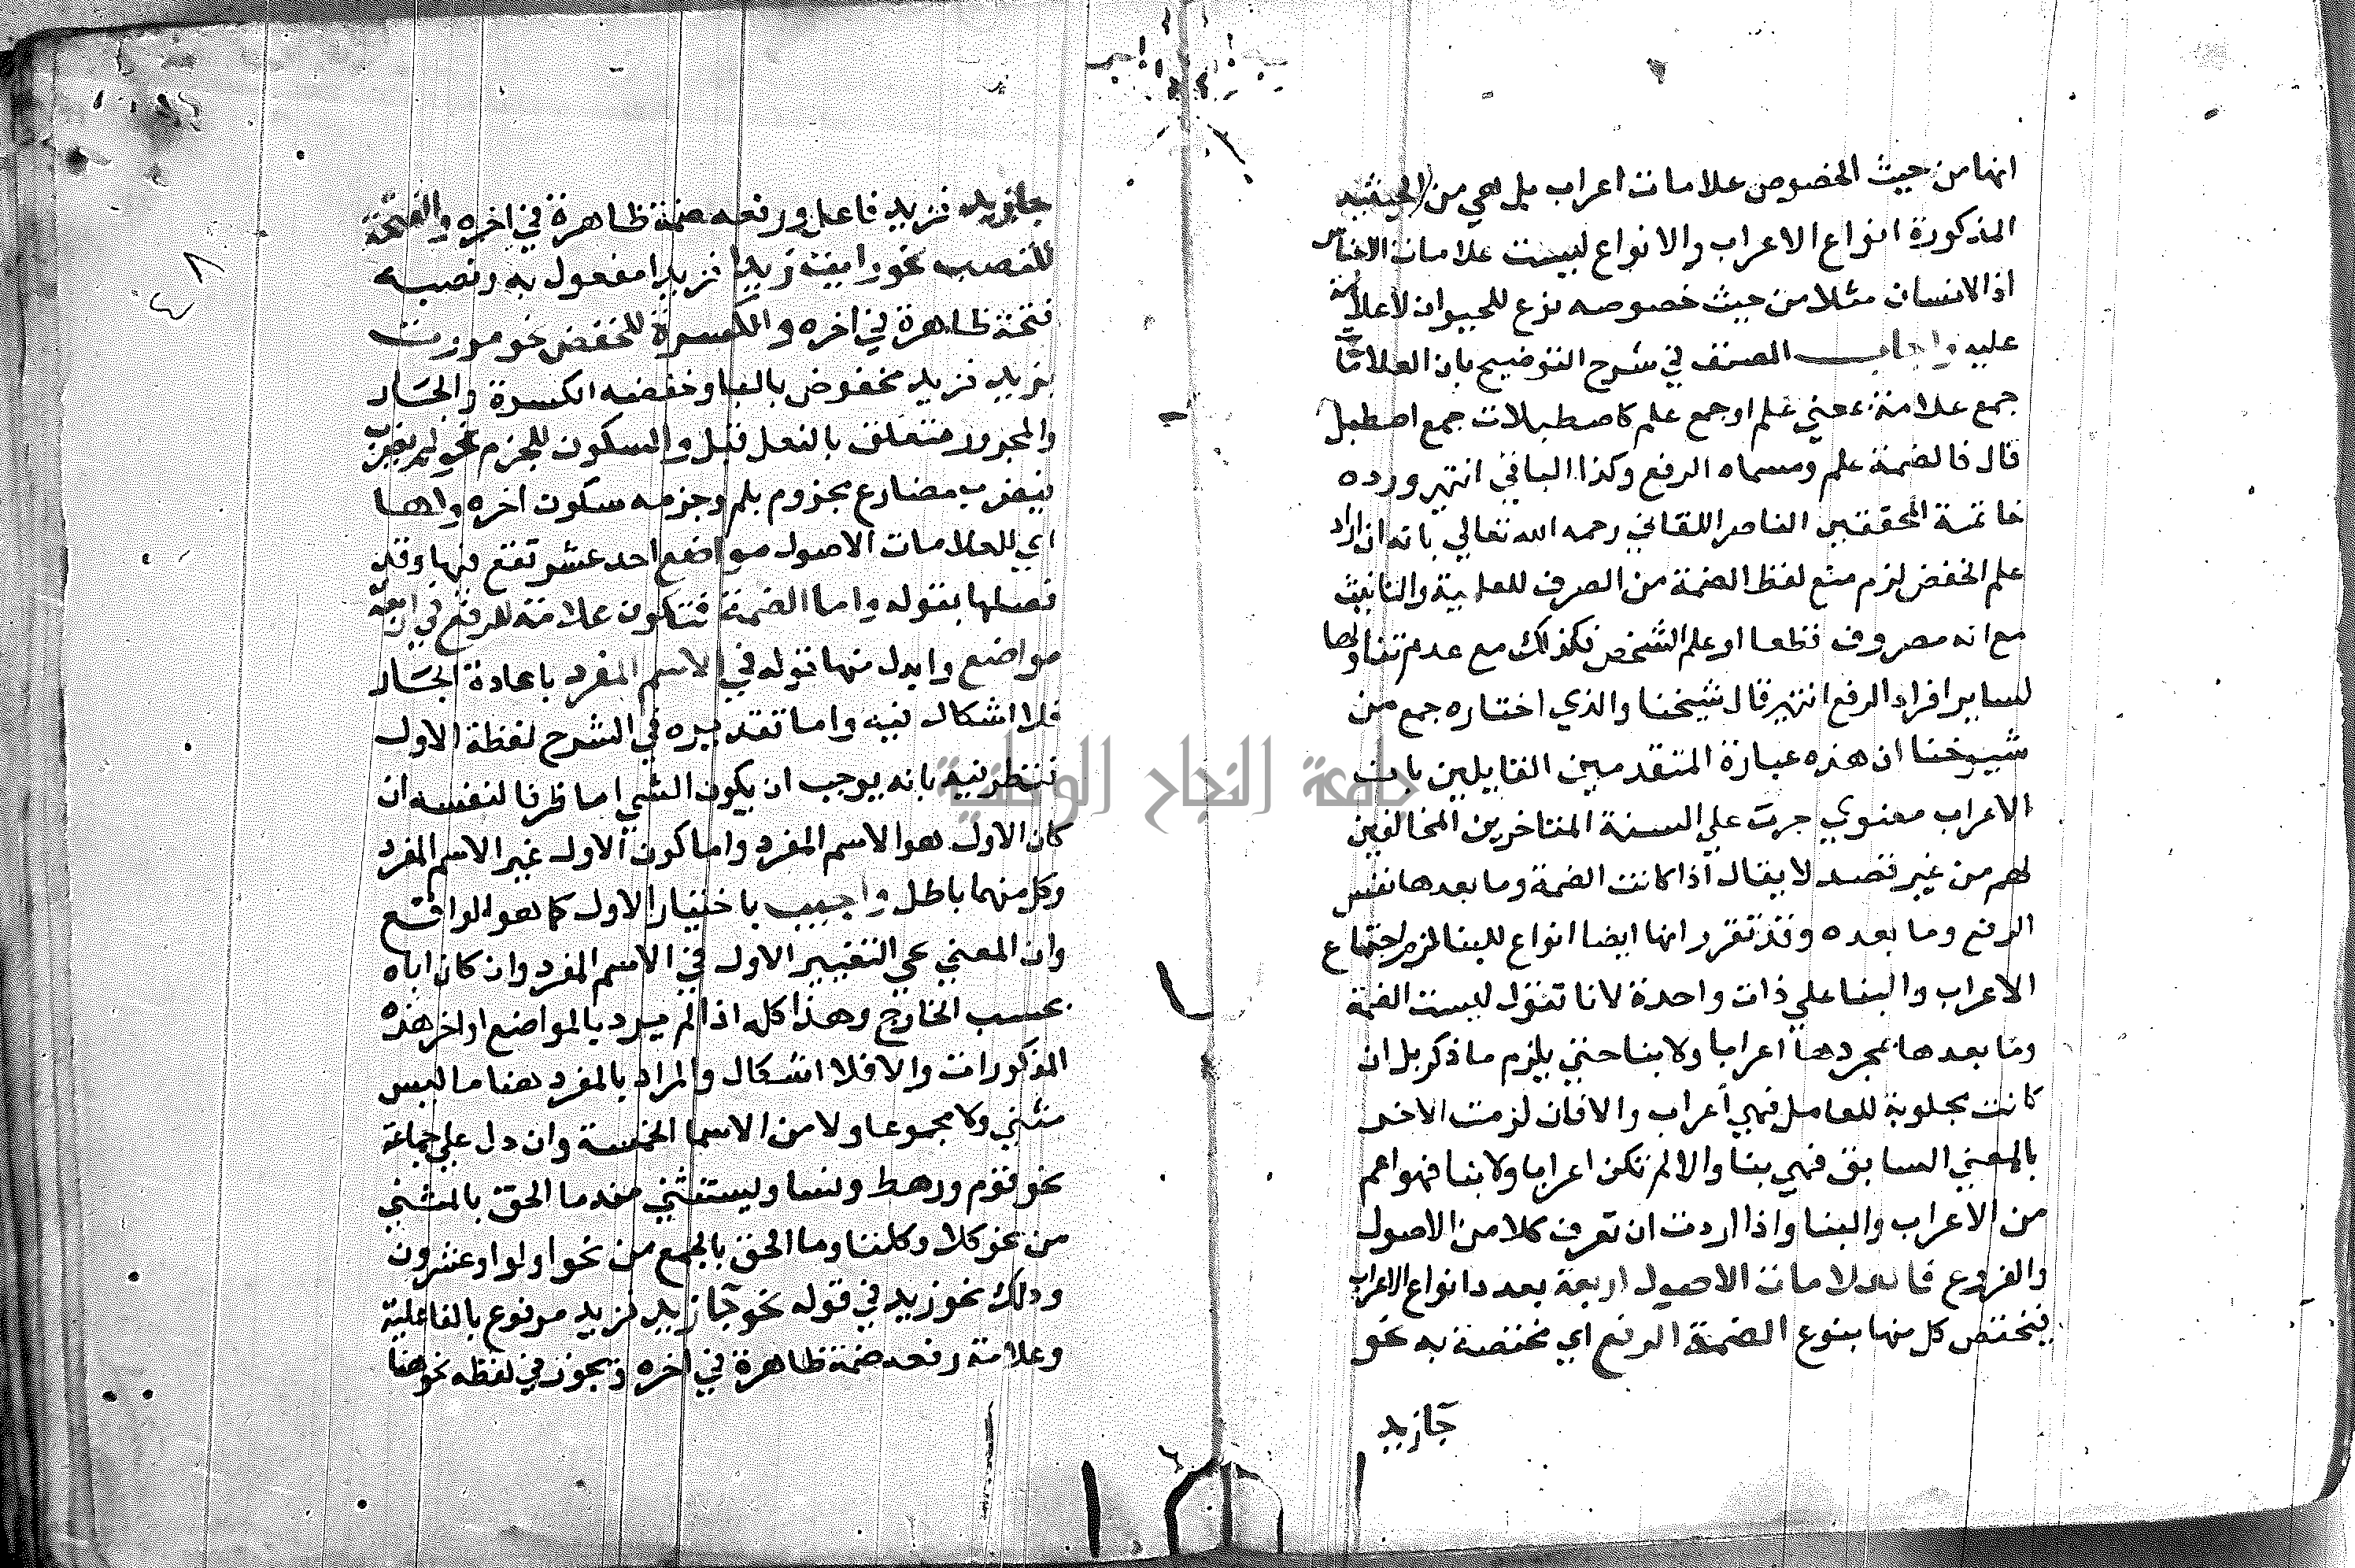 انها من حيث الخصوص علامات اعراب بل هي من الحيثية
المذكورة انواع الاعراب والانواع ليست علامات
اذ الانسان مثلا من حيث خصوصه نوع للحيوان لا علامة
عليه واجاب المصنف في شرح التوضيح بان العلامات
جمع علامة بمعني علم او جمع علم كاصطبلات جمع اصطبل
قال فالضمة علم ومسماه الرفع وكذا الباقي انتهي ورده
خاتمة المحققين الناصر اللقاني رحمه الله تعالي بانه ان اراد
علم الخفض لزم منع لفظ الضمة من الصرف للعلمية والتانيث
مع انه مصروف قطعا او علم الشخص فكذلك مع عدم تناولها
لساير افراد الرفع انتهي قال شيخنا والذي اختاره جمع من
شيوخنا ان هذه عبارة المتقدمين القايلين بان
الاعراب معنوي جرت علي السنة المتاخرين المخالفين
لهم من غير قصد لا يقال اذا كانت الضمة وما بعدها نفس
الرفع وما بعده وقد تقرر انها ايضا انواع للبنا لزم اجتماع
الاعراب والبنا علي ذات واحدة لانا نقول ليست الضمة
وما بعدها بمجردها اعرابا ولا بنا حتي يلزم ما ذكر بل ان
كانت مجلوبة للعامل فهي اعراب والا فان لزمت الاخر
بالمعني السابق فهي بنا والا لم تكن اعرابا ولا بنا فهو اعم
من الاعراب والبنا واذا اردت ان تعرف كلا من الاصول
والفروع فالعلامات الاصول اربعة بعدد انواع الاعراب
فيختص كل منها بنوع الضمة الرفع اي مختصة به نحو
جآ زيد
جا زيد فزيد فاعل ورفعه ضمة ظاهرة في اخره والفتحة
للنصب نحو رايت زيدا فزيدا مفعول به ونصبه
فتحة ظاهرة في اخره والكسرة للخفض نحو مررت
بزيد فزيد مخفوض بالبا وخفضه الكسرة والجار
والمجرور متعلق بالفعل قبل والسكون للجزم نحو لم يضرب
فيضرب مضارع مجزوم بلم وجزمه سكون اخره ولها
اي للعلامات الاصول مواضع احد عشر تقع فيها وقد
فصلها بقوله واما الضمة فتكون علامة للرفع في اربعة
مواضع وابدل منها قوله في الاسم المفرد باعادة الجار
فلا اشكال فيه واما تقديره في الشرح لفظة الاول
فنظر فيه بانه يوجب ان يكون الشي اما ظرفا لنفسه ان
كان الاول هو الاسم المفرد واما كون الاول غير الاسم المفرد
وكل منهما باطل واجيب باختيار الاول كما هو الواقع
وان المعني علي التغيير الاول في الاسم المفرد وان كان اياه
بحسب الخارج وهذا كله اذا لم يرد بالمواضع اواخر هذه
المذكورات والا فلا اشكال والمراد بالمفرد هنا ما ليس
مثني ولا مجموعا ولا من الاسما الخمسة وان دل علي جماعة
نحو قوم ورهط ونسا ويستثني منه ما الحق بالمثني
من نحو كلا وكلتا وما الحق بالجمع من نحو اولوا وعشرون
وذلك نحو زيد في قوله نحو جآ زيد فزيد مرفوع بالفاعلية
وعلامة رفعه ضمة ظاهرة في اخره ويجوز في لفظه نحو هنا
٤٨
جامعة النجاح الوطنية